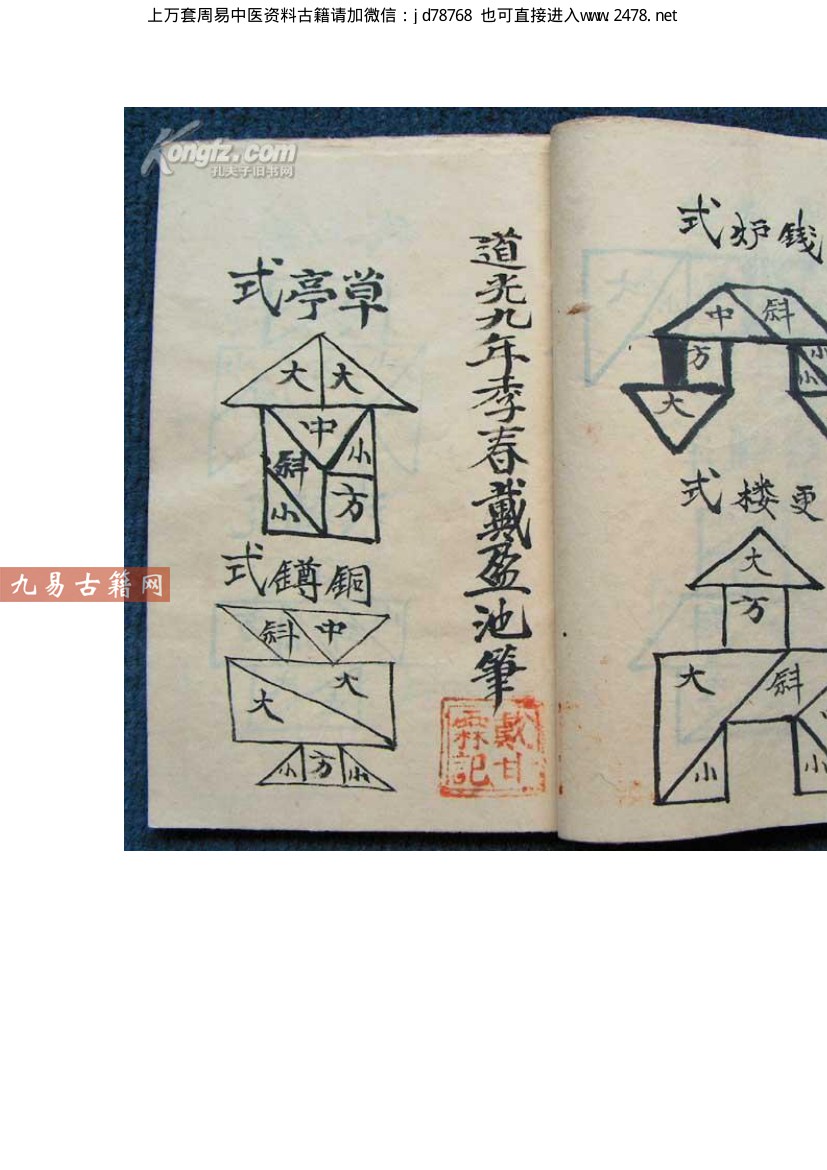 上万套周易中医资料古籍请加微信：jd78768 也可直接进入www.2478.net
Kongfz.com
孔夫子旧书网
钱炉式
中 斜
方 小
小
大
更楼式
大
方
大 斜
小 小
道光九年季春戴盈池筆
戴甘霖記
草亭式
大 大
中
斜 小
小 方
銅鐏式
斜 中
大 大
小 方 小
九易古籍网